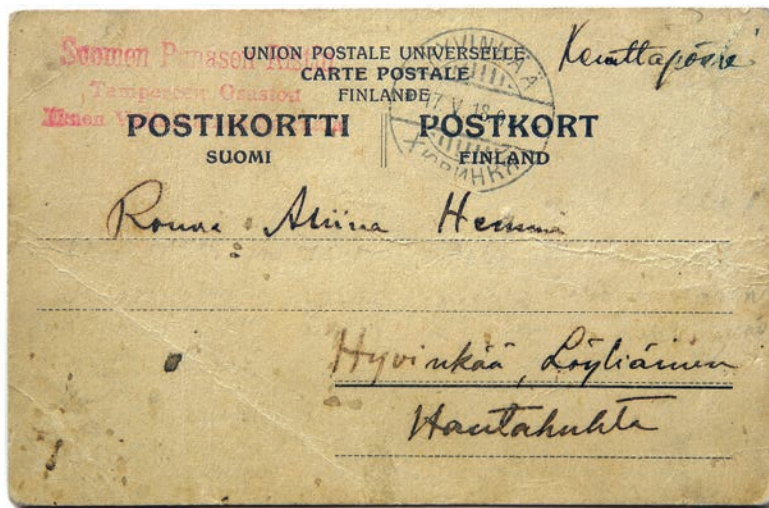 Suomen Punasen Ristin
Tampereen Osaston
UNION POSTALE UNIVERSELLE
CARTE POSTALE
FINLANDE
Kenttäpostia
HYVINKÄÄ
17.V.18
POSTIKORTTI POSTKORT
SUOMI FINLAND
Rouva
Hyvinkää, Löyliäinen
Hautahuhta